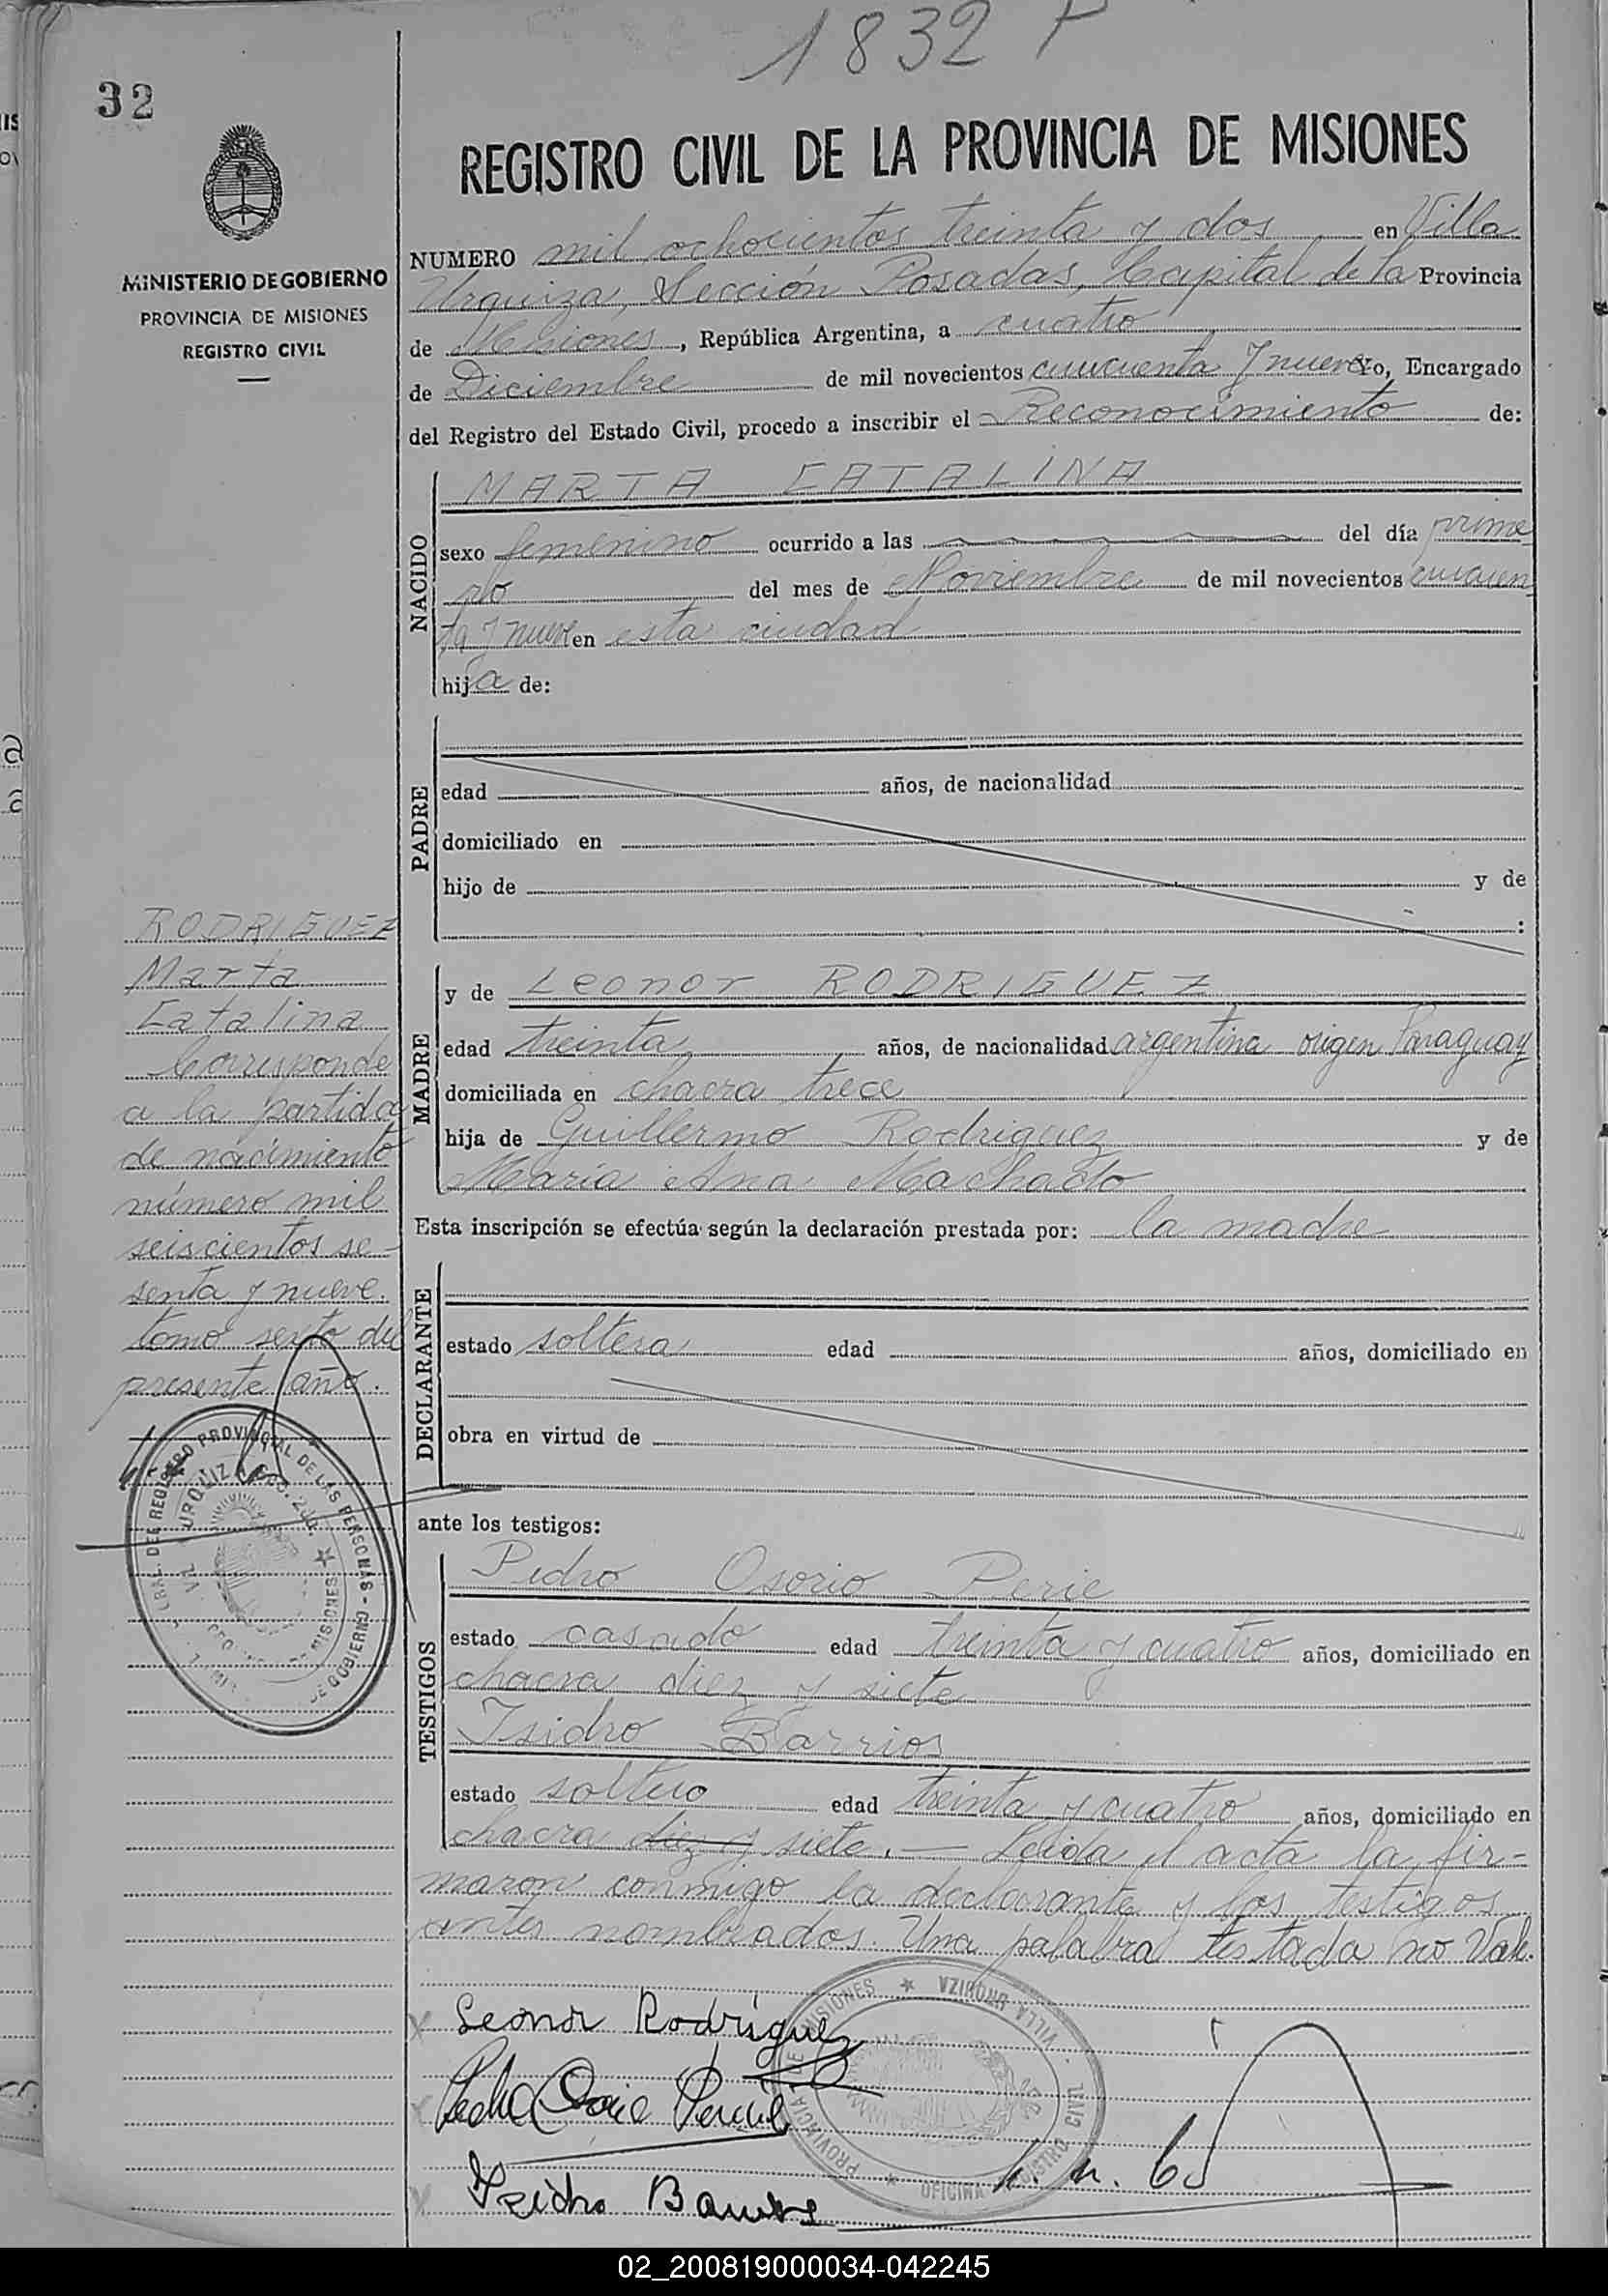 1832
32
REGISTRO CIVIL DE LA PROVINCIA DE MISIONES
MINISTERIO DE GOBIERNO
PROVINCIA DE MISIONES
REGISTRO CIVIL
NUMERO mil ochocientos treinta y dos en Villa
Urquiza, Sección Posadas, Capital de la Provincia
de Misiones, República Argentina, a cuatro
de Diciembre de mil novecientos cincuenta y nueve yo, Encargado
del Registro del Estado Civil, procedo a inscribir el Reconocimiento de:
NACIDO
MARTA CATALINA
sexo femenino ocurrido a las del día prime
ro del mes de Noviembre de mil novecientos cincuen
ta y nueve en esta ciudad
hija de:
PADRE
edad años, de nacionalidad
domiciliado en
hijo de y de
:
MADRE
y de Leonor RODRIGUEZ
edad treinta años, de nacionalidad argentina origen Paraguay
domiciliada en chacra trece
hija de Guillermo Rodriguez y de
Maria Ana Machado
Esta inscripción se efectúa según la declaración prestada por: la madre
DECLARANTE
estado soltera edad años, domiciliado en
obra en virtud de
ante los testigos:
TESTIGOS
Pedro Osorio Perie
estado casado edad treinta y cuatro años, domiciliado en
chacra diez y siete
Isidro Barrios
estado soltero edad treinta y cuatro años, domiciliado en
chacra diez y siete. — Leida el acta la fir-
maron conmigo la declarante y los testigos
antes nombrados. Una palabra testada no Vale.
RODRIGUEZ
Marta
Catalina
Corresponde
a la partida
de nacimiento
número mil
seiscientos se-
senta y nueve.
tomo sexto del
presente año.
Leonor Rodríguez
Pedro Osorio
Isidro Barrios
OFICINA REGISTRO CIVIL - VILLA URQUIZA ★ PROVINCIA DE MISIONES ★
02_200819000034-042245